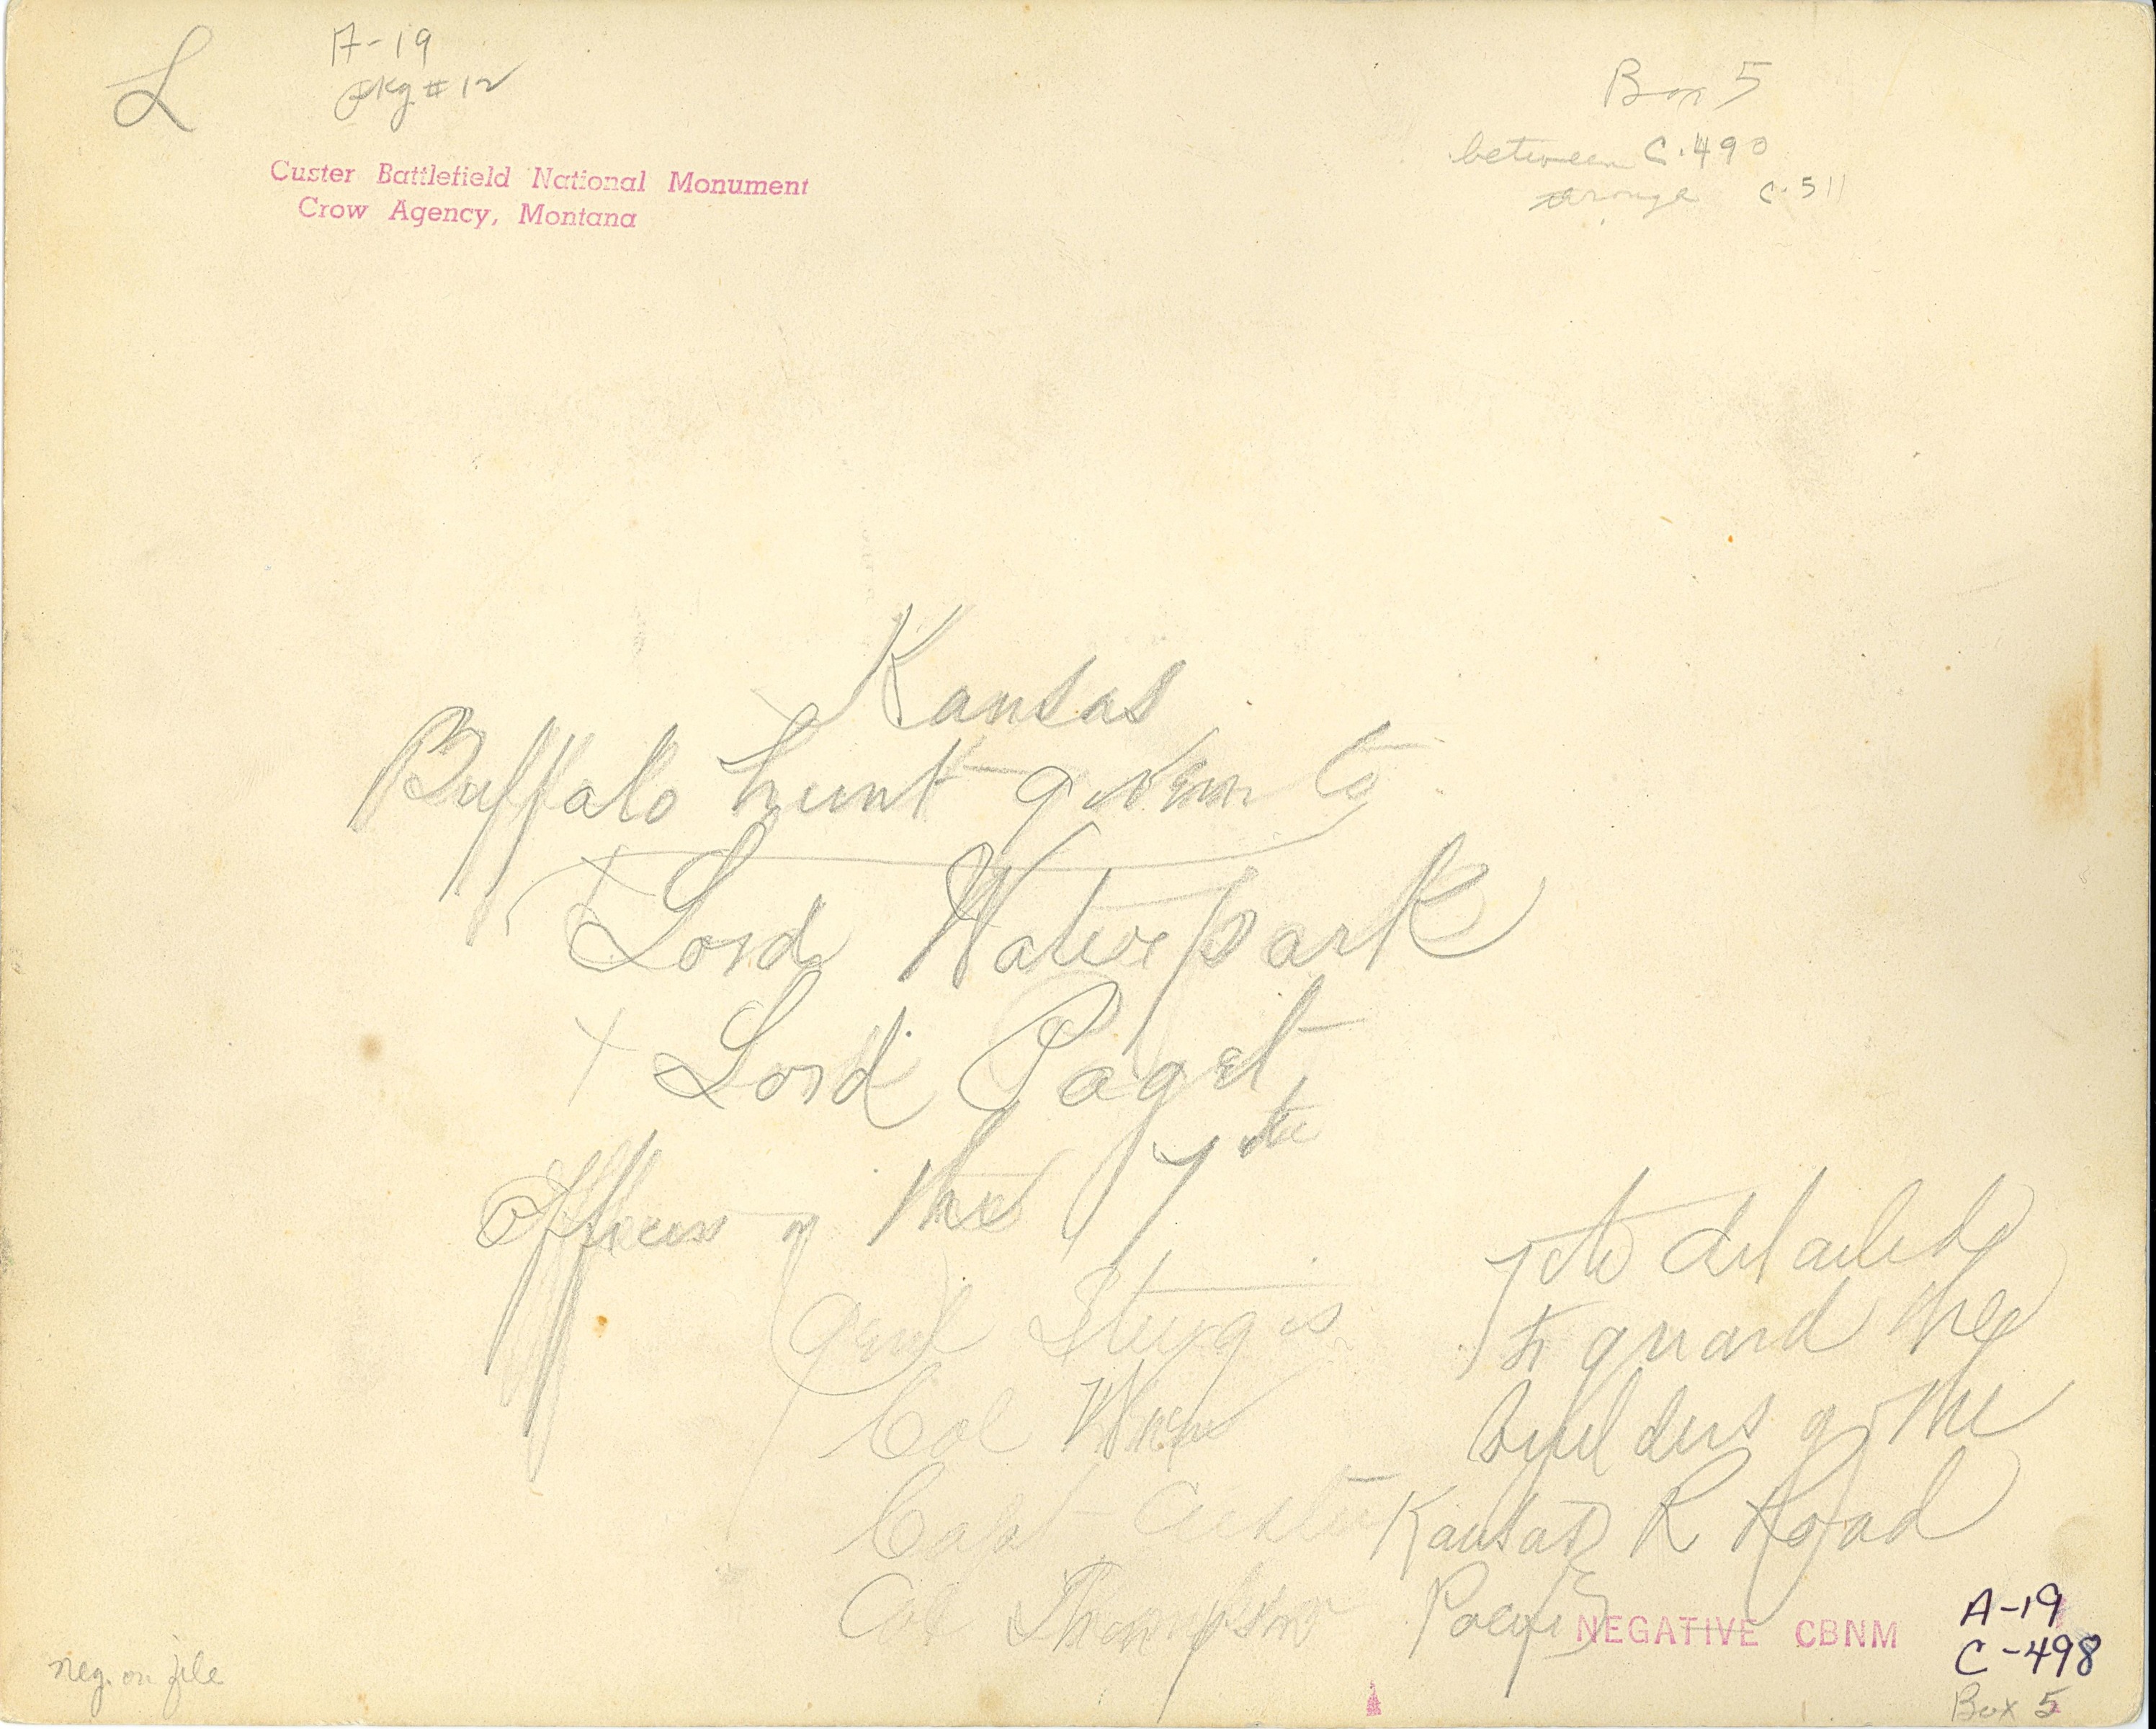 L
A-19
pkg # 12
Box 5
between C.490
through C.511
Custer Battlefield National Monument
Crow Agency, Montana
Kansas
Buffalo hunt given to
x Lord Waterpark
x Lord Paget
Officers of the 7th
Genl Sturgis
Col
Capt Custer
Col Thompson
7th detailed
to guard the
builders of the
Kansas R Road
Pacific
NEGATIVE CBNM
A-19
C-498
Box 5
neg. on file